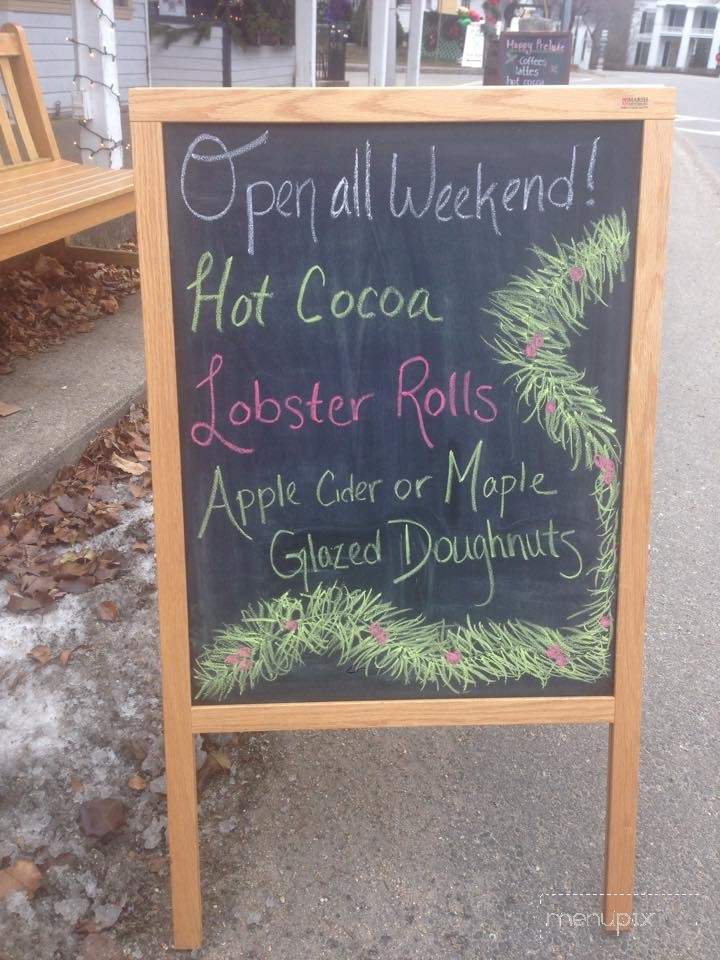 Happy Prelude
Coffees
lattes
hot cocoa
Open all Weekend!
Hot Cocoa
Lobster Rolls
Apple Cider or Maple
Glazed Doughnuts
menupix